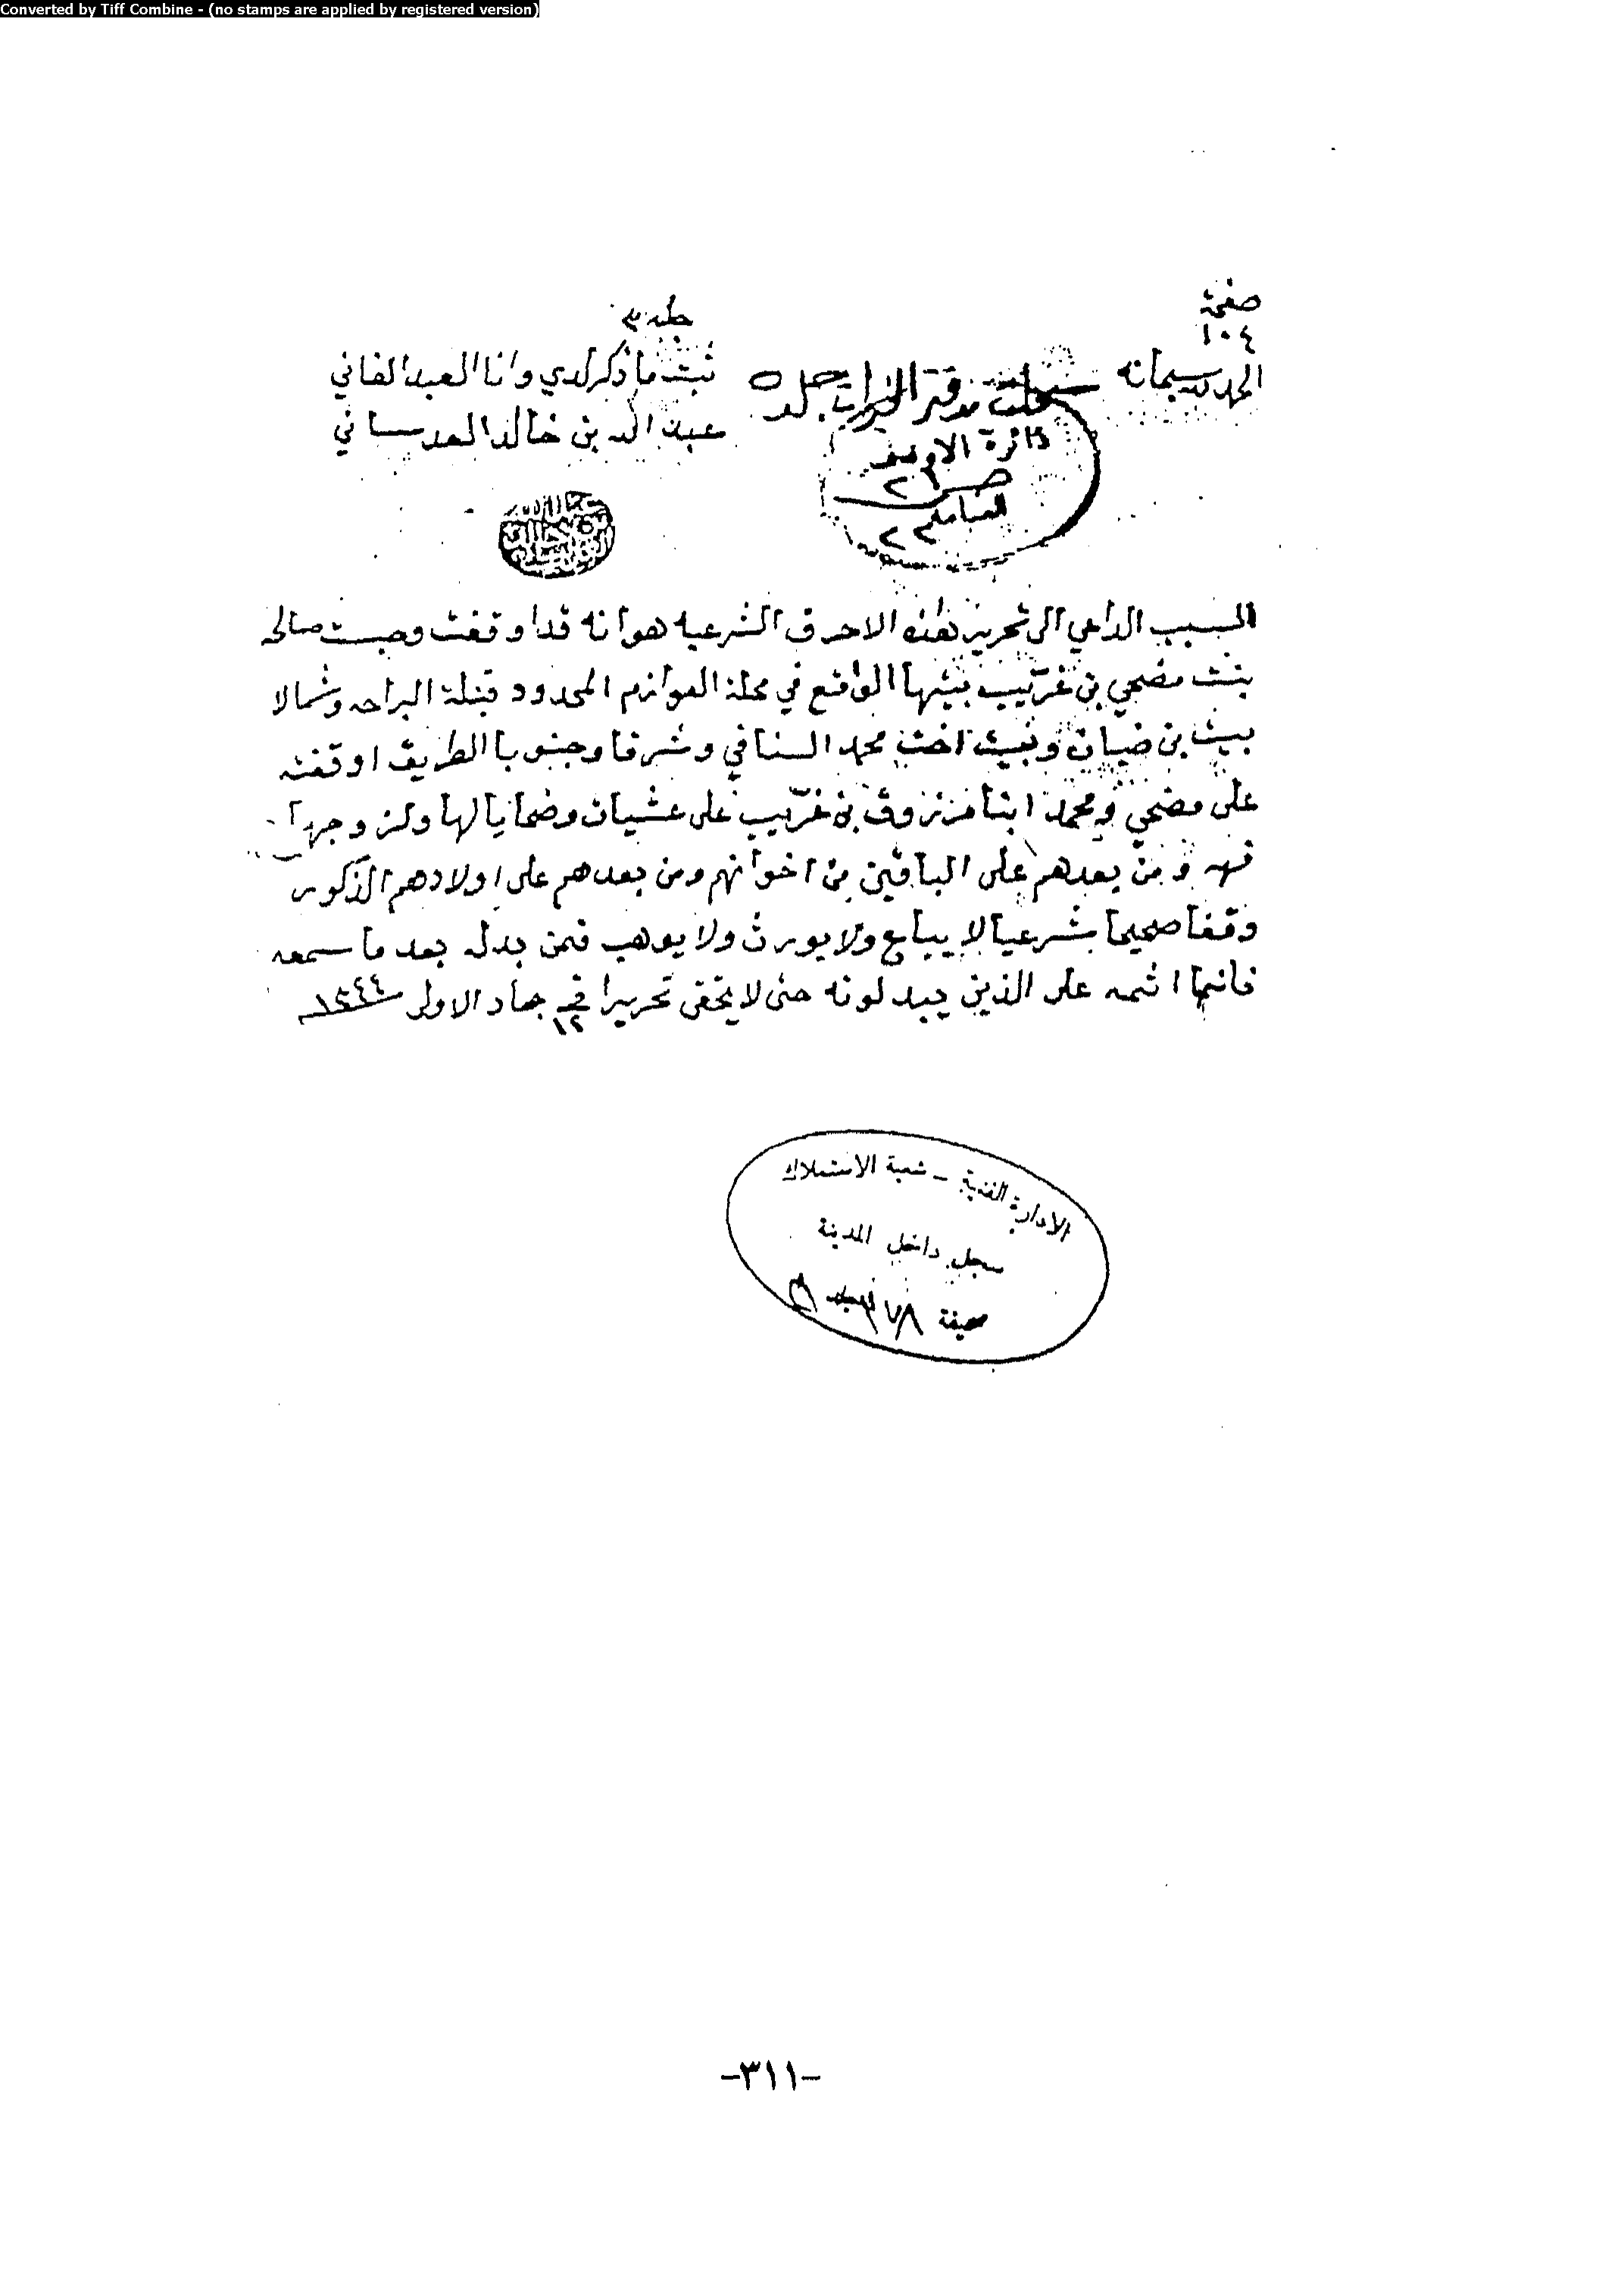 Converted by Tiff Combine - (no stamps are applied by registered version)
صفحة
١٠٤
جلد ٣
الحمد لله سبحانه
ثبت ما ذكر لدي وانا العبد الفاني
عبد الله بن خالد العدساني
دائرة الاوقاف
السبب الداعي الى تحرير هذه الاحرف الشرعيه هو انه قد اوقفت وحبست صالحه
بنت مضحي بن غريب بيتها الواقع في محلة العوازم المحدود قبلة البراحه وشمالا
بيت بن ضبيان وبيت اخت محمد السنافي وشرقا وجنوبا الطريق اوقفته
على مضحي ومحمد ابنا مرزوق بن غريب على عشيات وضحايا لها ولزوجها
فهد ومن بعدهم على الباقين من اخوانهم ومن بعدهم على اولادهم الذكور
وقفا صحيحا شرعيا لا يباع ولا يورث ولا يوهب فمن بدله بعد ما سمعه
فانما اثمه على الذين يبدلونه حتى لا يخفى تحريرا في ١٢ جماد الاولى ١٣٤٤
الادارة الفنية - شعبة الاستملاك
سجل داخل المدينة
صحيفة ٧٨ المجلد ٥
-٣١١-